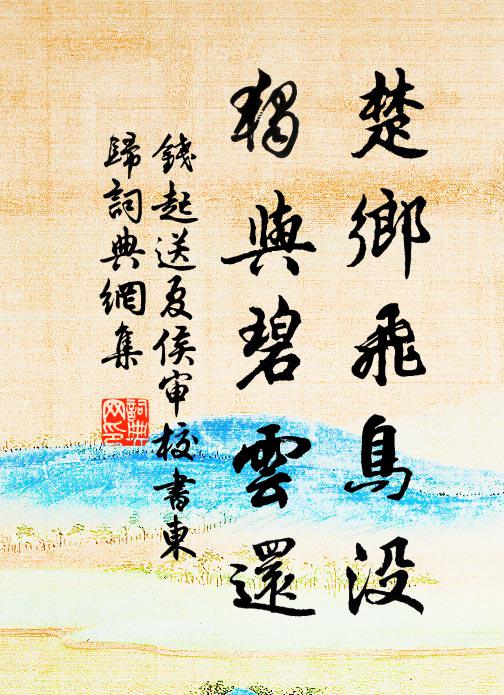 楚鄉飛鳥没
獨與碧雲還
錢起送夏侯审校書東
歸詞典網集
詞典
网印